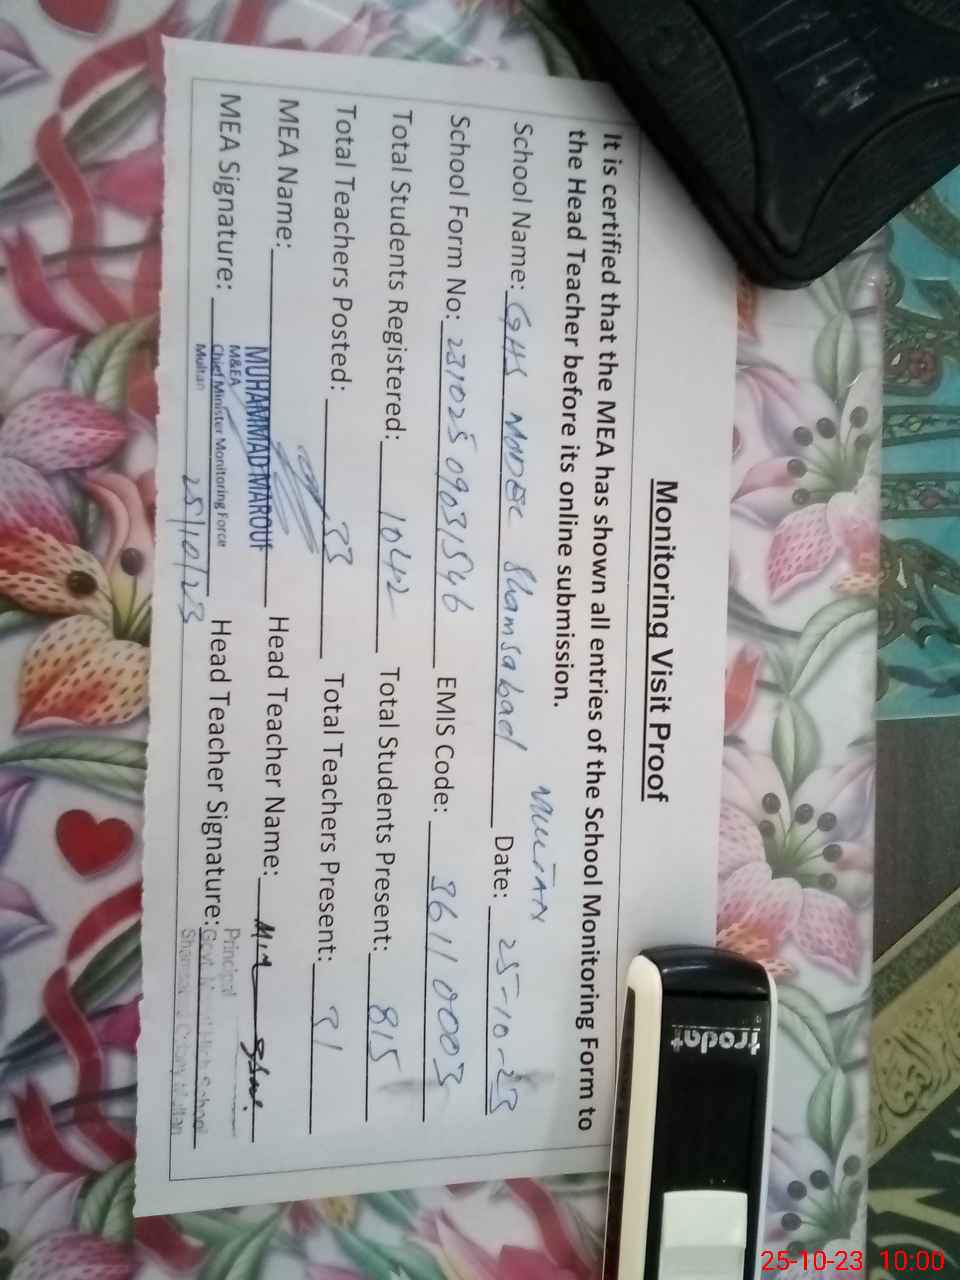 Monitoring Visit Proof
It is certified that the MEA has shown all entries of the School Monitoring Form to
the Head Teacher before its online submission.
MULTAN
School Name: GHS MODEL Shamsabad Date: 25-10-23
School Form No: 231025 09031546 EMIS Code: 36110003
Total Students Registered: 1042 Total Students Present: 815
Total Teachers Posted: 33 Total Teachers Present: 31
MEA Name: MUHAMMAD MAROUF Head Teacher Name:
M&EA
Principal
MEA Signature: Chief Minister Monitoring Force Head Teacher Signature: Govt. School
Multan
25/10/23
Multan
trodat
25-10-23 10:00